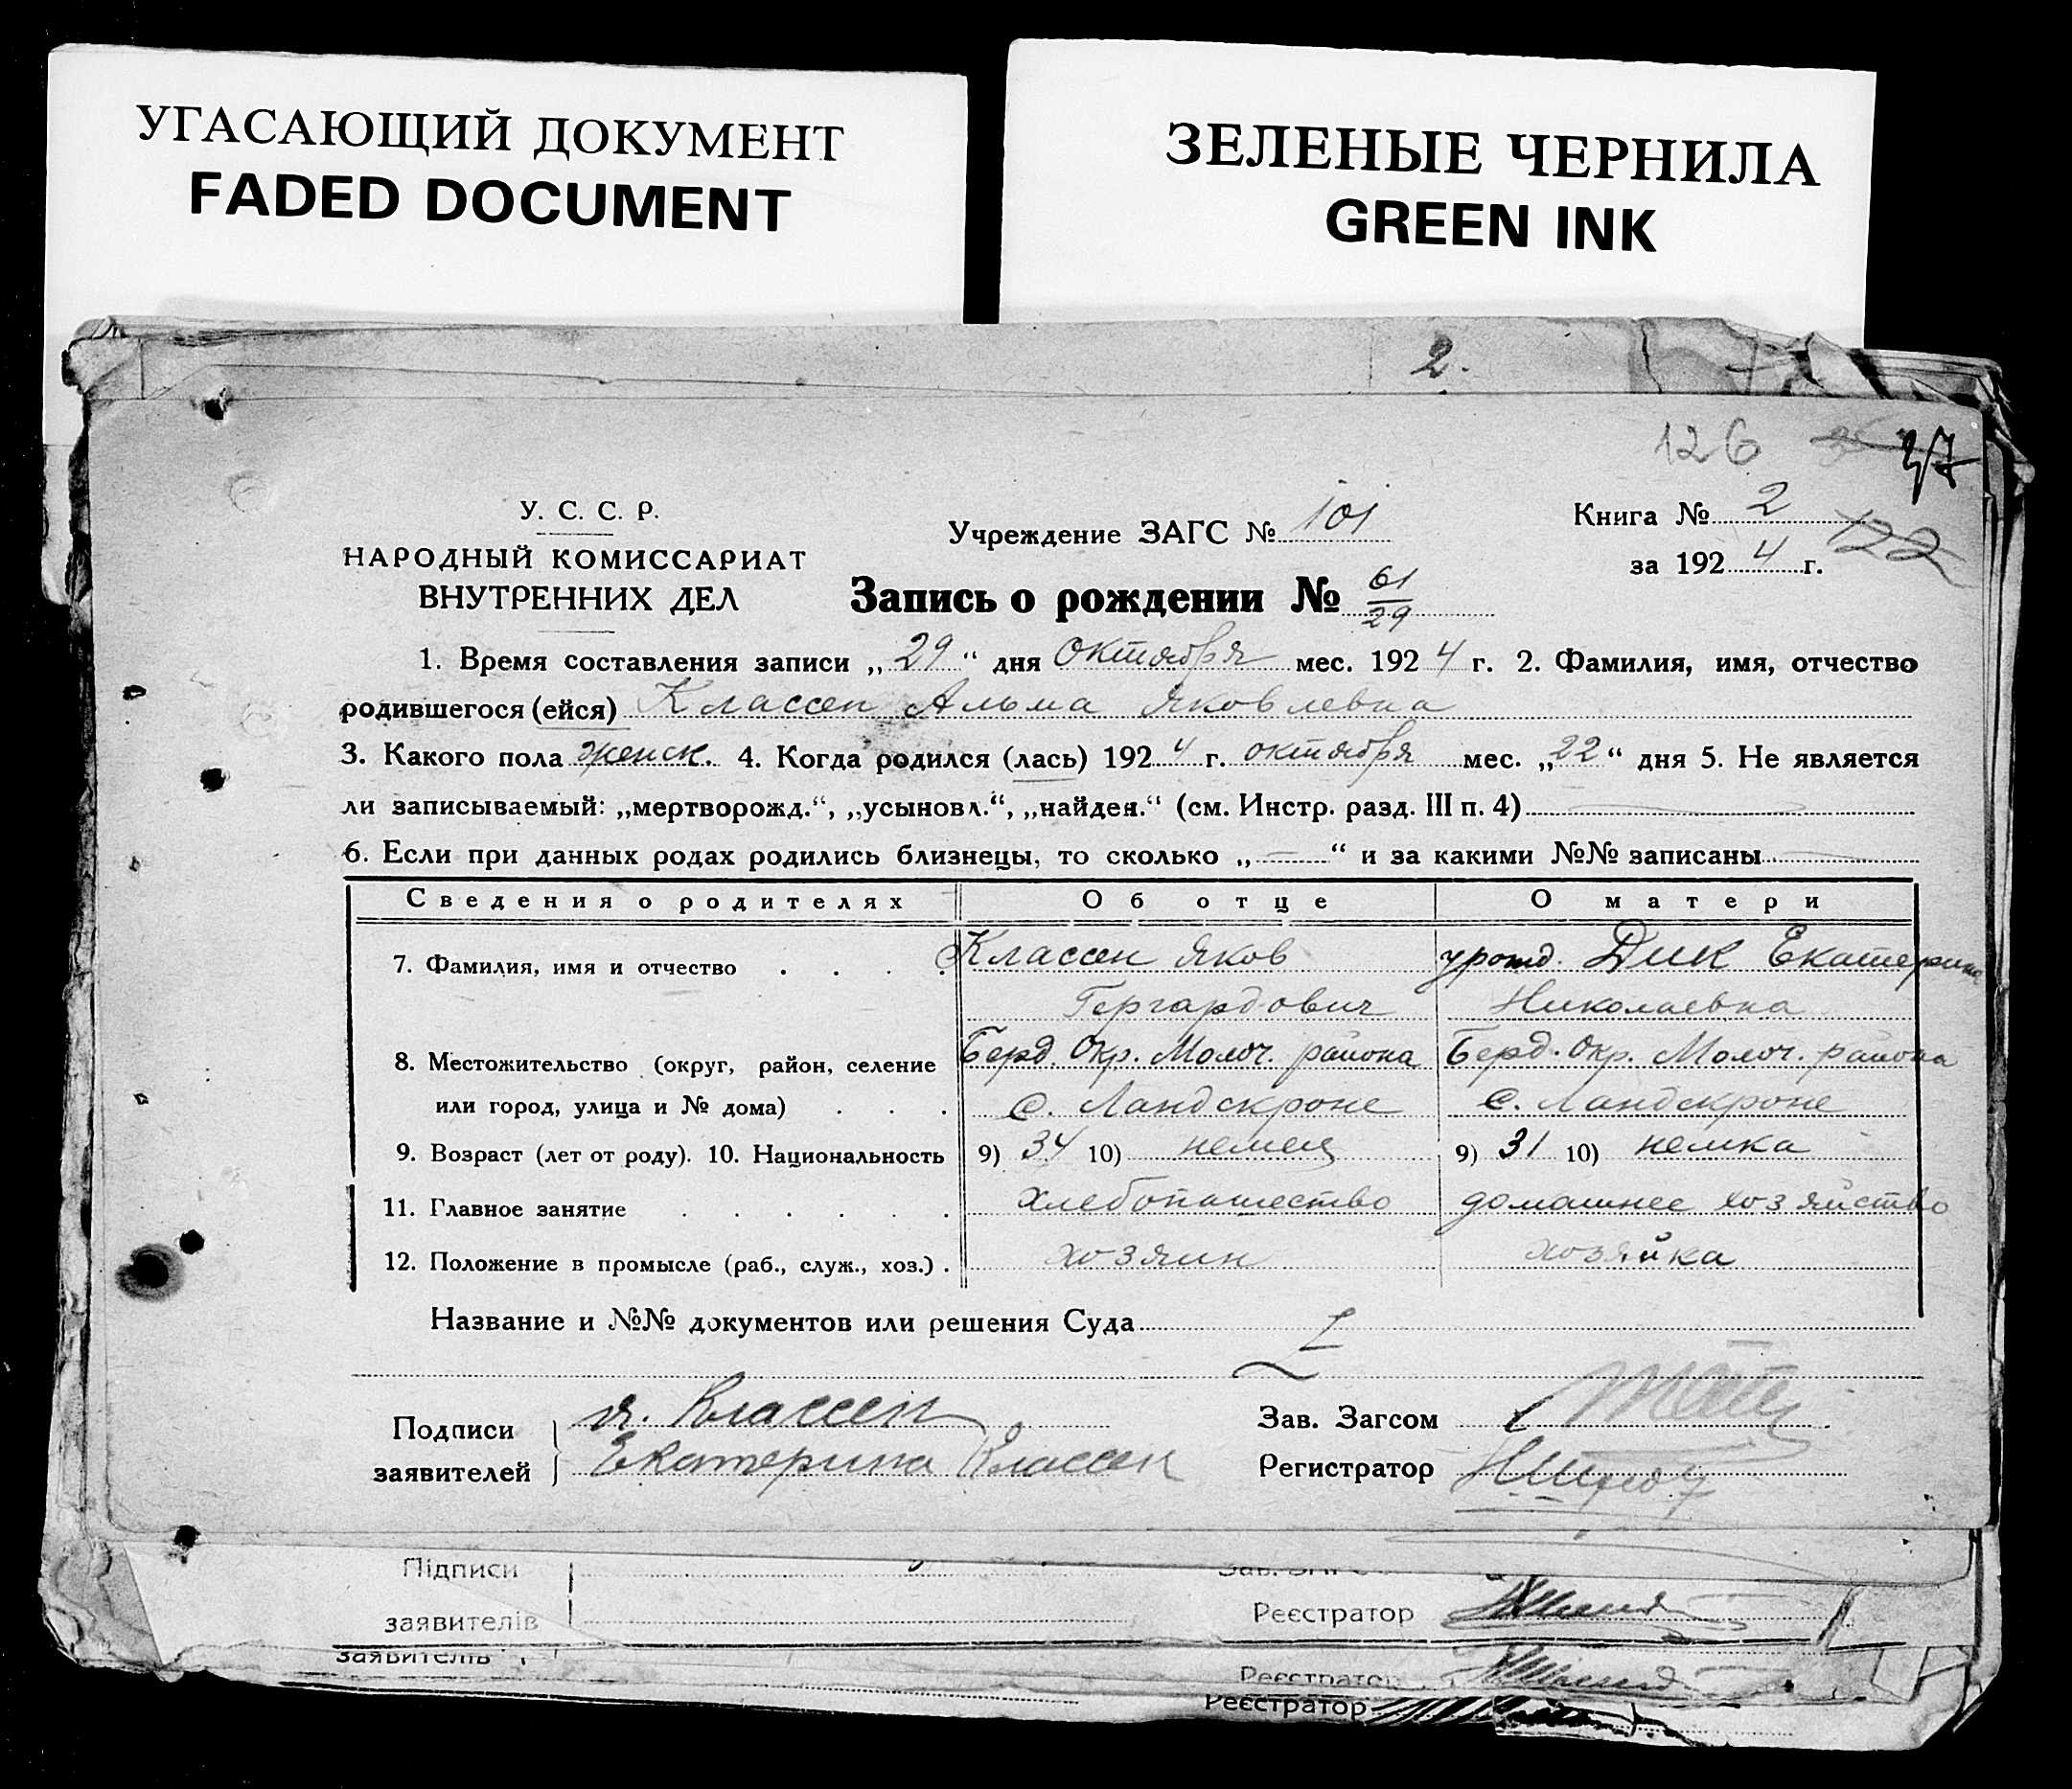 УГАСАЮЩИЙ ДОКУМЕНТ
FADED DOCUMENT
ЗЕЛЕНЫЕ ЧЕРНИЛА
GREEN INK
2.
126 37
У. С. С. Р.
НАРОДНЫЙ КОМИССАРИАТ
ВНУТРЕННИХ ДЕЛ
Учреждение ЗАГС № 101
Книга № 2
за 1924 г. 122
Запись о рождении № 61/29
1. Время составления записи „29“ дня Октября мес. 1924 г. 2. Фамилия, имя, отчество
родившегося (ейся) Классен Альма Яковлевна
3. Какого пола женск. 4. Когда родился (лась) 1924 г. октября мес. „22“ дня 5. Не является
ли записываемый: „мертворожд.“, „усыновл.“, „найден.“ (см. Инстр. разд. III п. 4)
6. Если при данных родах родились близнецы, то сколько „—“ и за какими №№ записаны
Сведения о родителях Об отце О матери
7. Фамилия, имя и отчество . . . . Классен Яков урожд. Дик Екатерина
Гергардович Николаевна
8. Местожительство (округ, район, селение Берд. Окр. Молоч. района Берд. Окр. Молоч. района
или город, улица и № дома) . . . с. Ландскроне с. Ландскроне
9. Возраст (лет от роду). 10. Национальность 9) 34 10) немец 9) 31 10) немка
11. Главное занятие . . . . . . хлебопашество домашнее хозяйство
12. Положение в промысле (раб., служ., хоз.) . хозяин хозяйка
Название и №№ документов или решения Суда
Подписи Я. Классен Зав. Загсом
заявителей Екатерина Классен Регистратор
Підписи
заявителів Реєстратор
заявителів Реєстратор
Реєстратор